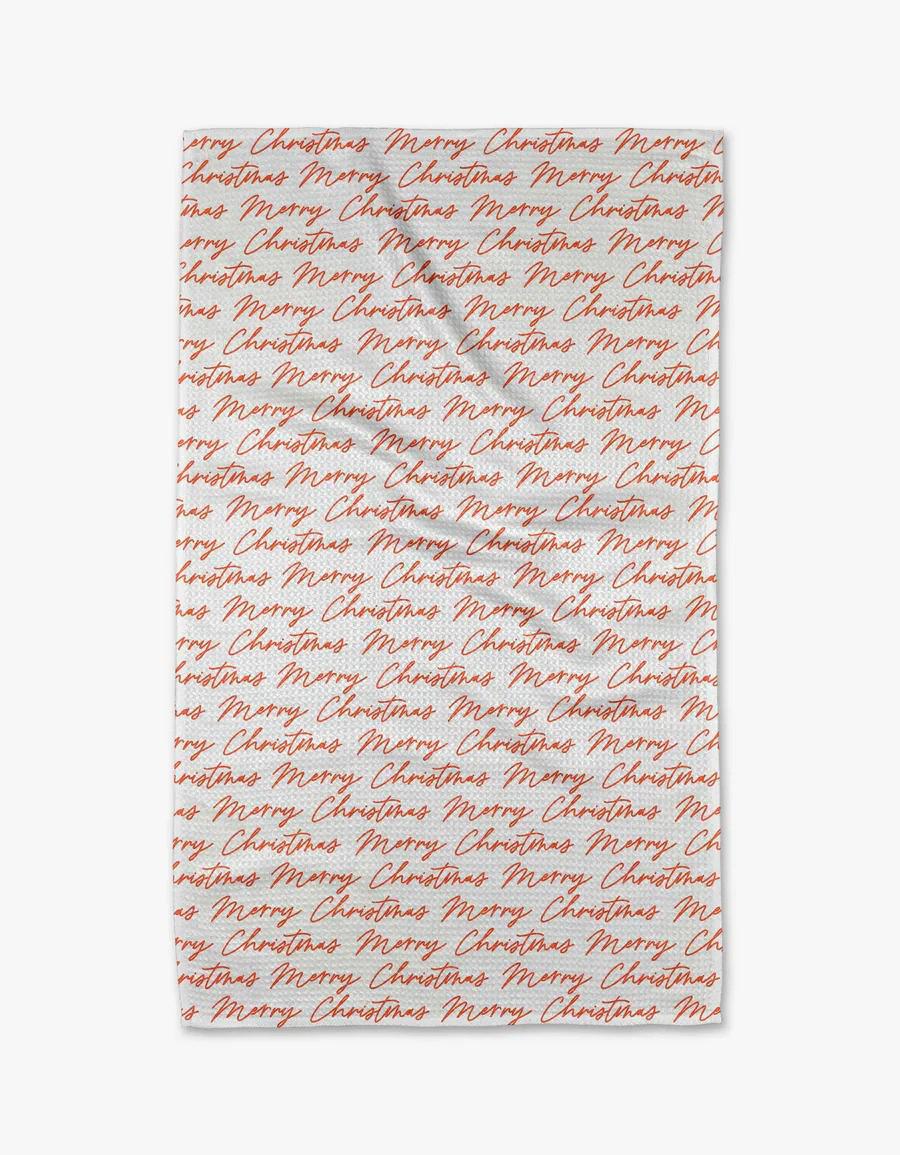 erry Christmas Merry Christmas Merry C
Christmas Merry Christmas Merry Christm
tmas Merry Christmas Merry Christmas M
erry Christmas Merry Christmas Merry C
Christmas Merry Christmas Merry Christm
mas Merry Christmas Merry Christmas M
rry Christmas Merry Christmas Merry Ch
ristmas Merry Christmas Merry Christmas
as Merry Christmas Merry Christmas Me
erry Christmas Merry Christmas Merry C
hristmas Merry Christmas Merry Christmas
mas Merry Christmas Merry Christmas M
erry Christmas Merry Christmas Merry C
hristmas Merry Christmas Merry Christma
mas Merry Christmas Merry Christmas M
rry Christmas Merry Christmas Merry C
hristmas Merry Christmas Merry Christmas
as Merry Christmas Merry Christmas M
rry Christmas Merry Christmas Merry Ch
ristmas Merry Christmas Merry Christmas
as Merry Christmas Merry Christmas Me
rry Christmas Merry Christmas Merry Ch
ristmas Merry Christmas Merry Christmas
as Merry Christmas Merry Christmas Me
rry Christmas Merry Christmas Merry Ch
ristmas Merry Christmas Merry Christmas
s Merry Christmas Merry Christmas Me